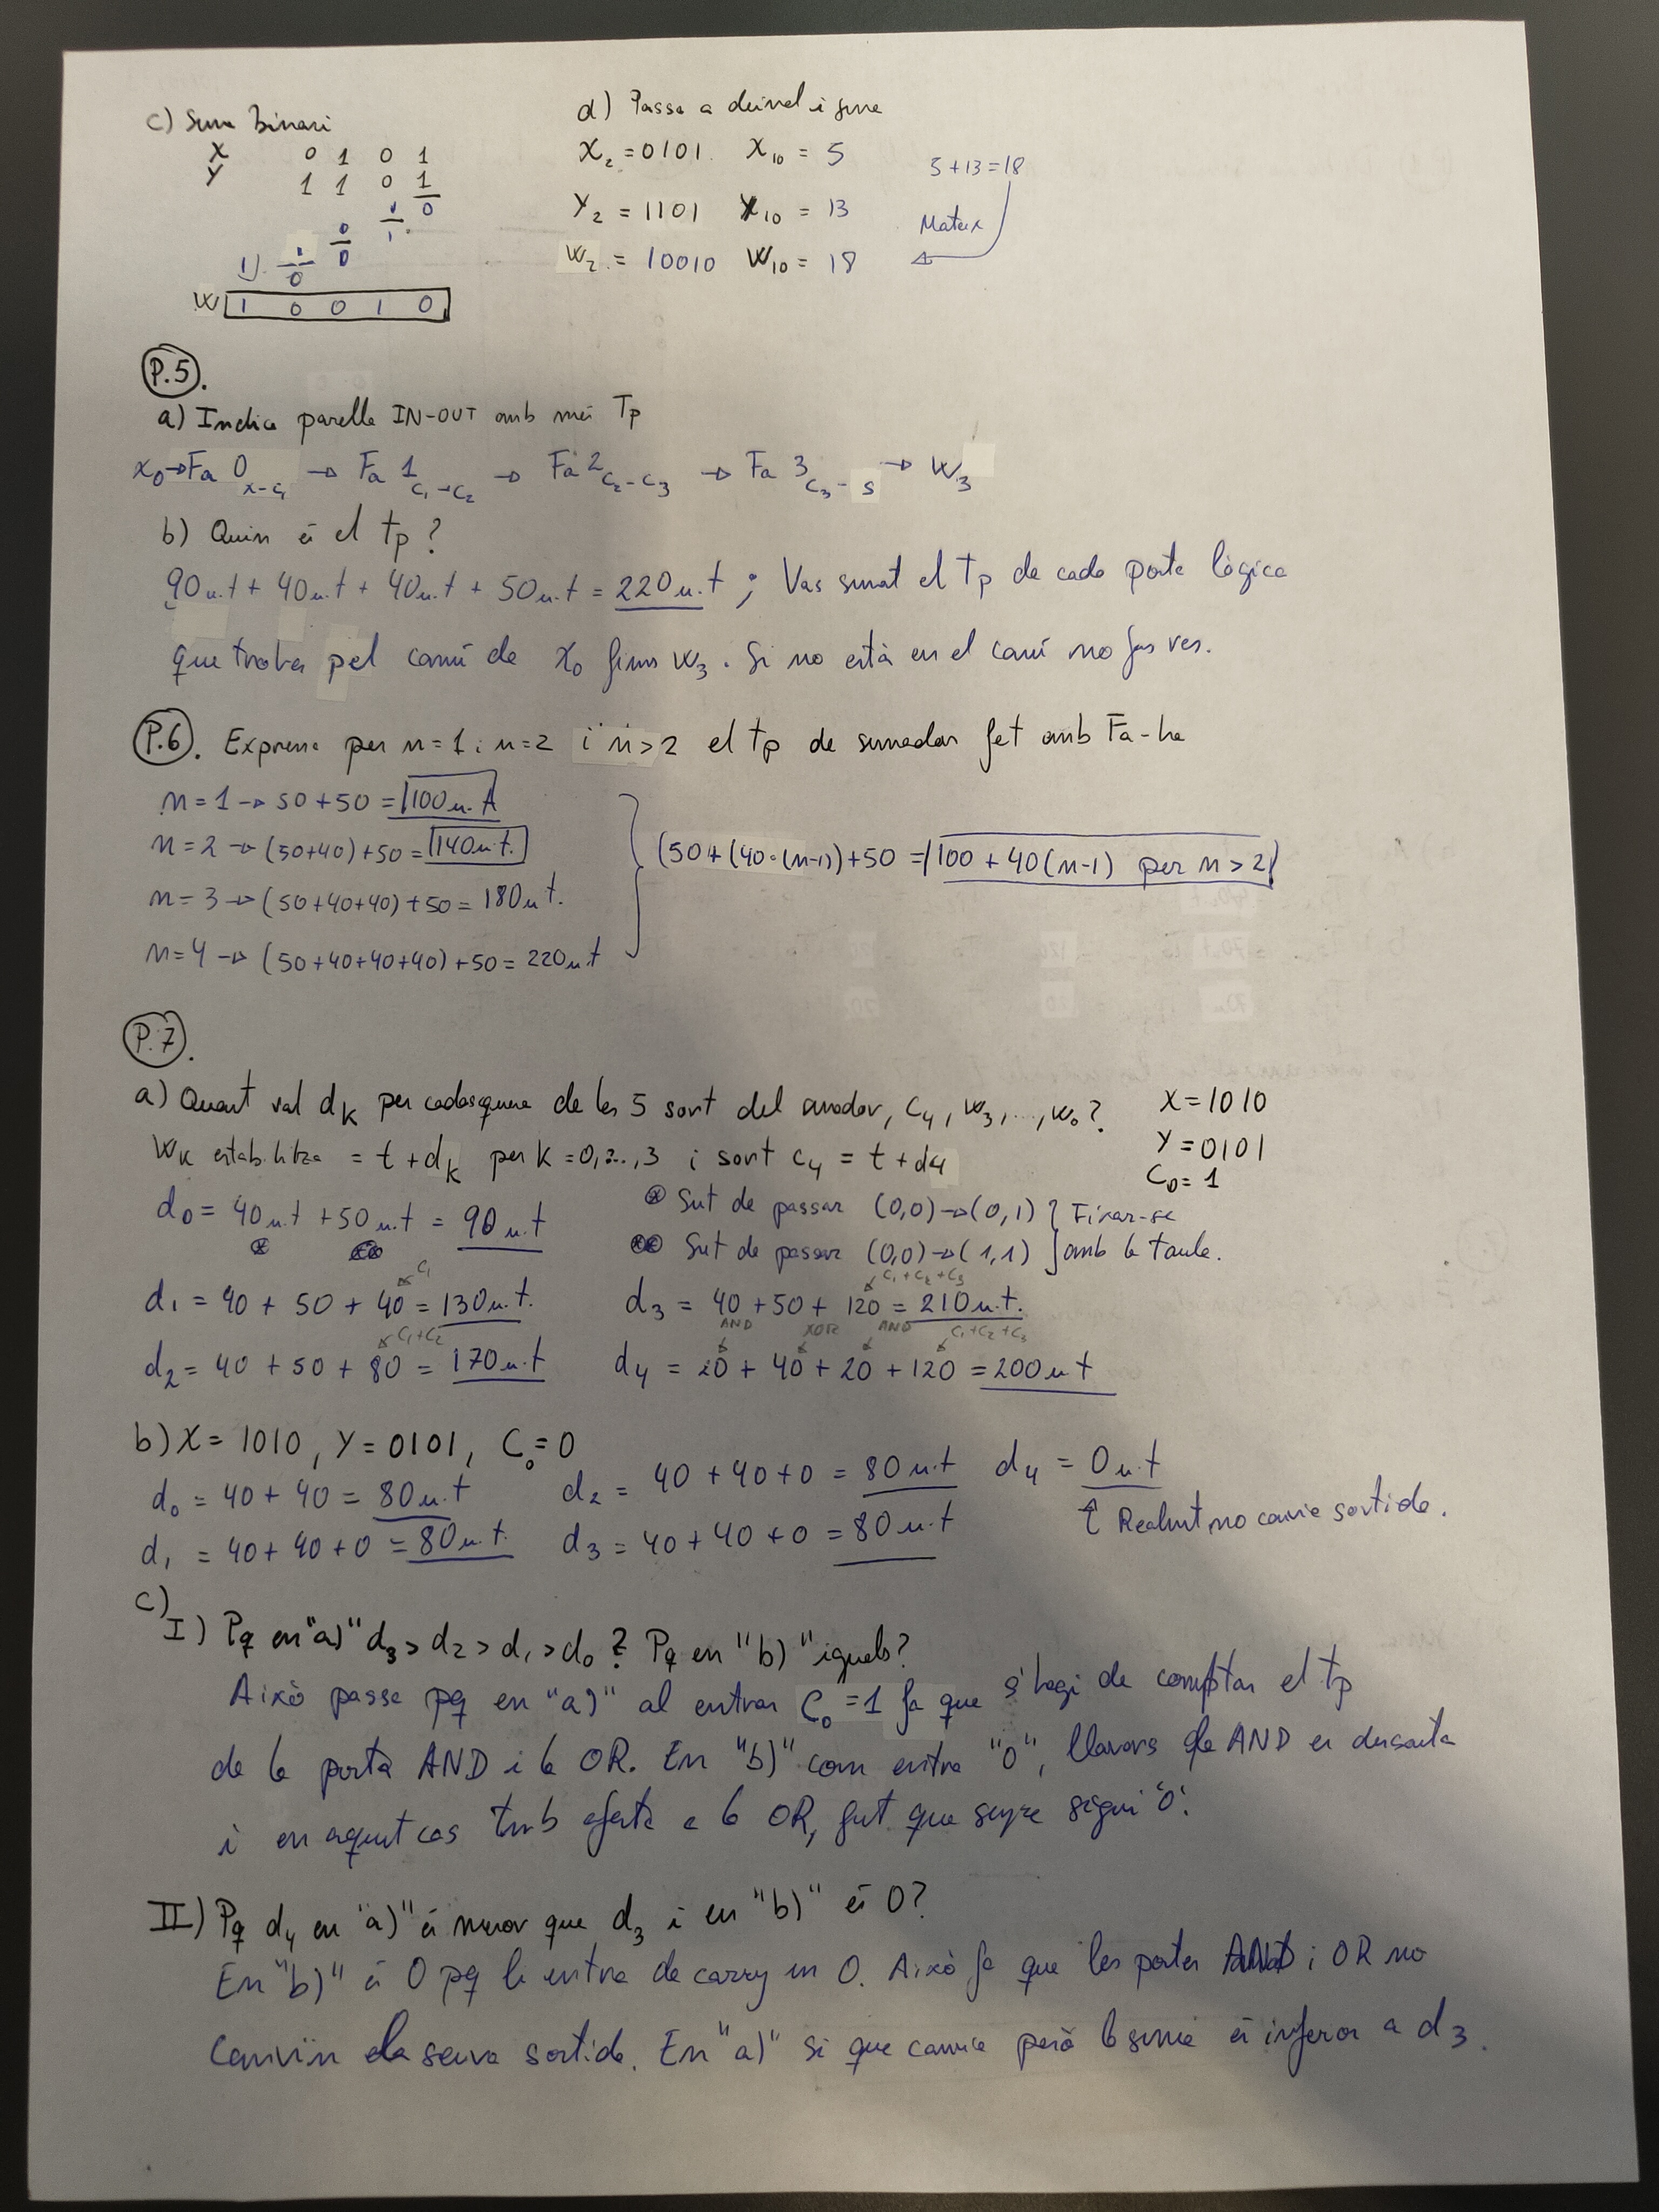 c) Suma Binari
X 0 1 0 1
Y 1 1 0 1
0
1
0
0
1) 0
W 1 0 0 1 0
d) Passa a decimal i suma
X₂ = 0101 X₁₀ = 5
Y₂ = 1101 Y₁₀ = 13
W₂ = 10010 W₁₀ = 18
5 + 13 = 18
Mateix
P.5.
a) Indica parella IN-OUT amb més Tp
x₀ → Fa 0 x-c₁ → Fa 1 c₁→c₂ → Fa 2 c₂-c₃ → Fa 3 c₃-s → W₃
b) Quin és el tp?
90u.t + 40u.t + 40u.t + 50u.t = 220u.t ; Vas sumat el tp de cada porta lògica
que trobes pel camí de x₀ fins w₃. Si no està en el camí no fas res.
P.6. Expressa per n=1 i n=2 i n>2 el tp de sumador fet amb Fa-ha
n=1 → 50+50 = 100u.t
n=2 → (50+40)+50 = 140u.t.
n=3 → (50+40+40)+50 = 180u.t.
n=4 → (50+40+40+40)+50 = 220u.t
(50+(40·(n-1))+50 = 100 + 40(n-1) per n>2
P.7.
a) Quant val dK per cadasquuna de les 5 sort del sumador, C₄, W₃, ..., W₀?
X = 1010
Y = 0101
C₀ = 1
WK estabilitza = t + dK per K = 0,2..,3 i sort C₄ = t + d4
d₀ = 40u.t + 50u.t = 90u.t
* Surt de passar (0,0)→(0,1) } Fixar-se
** Surt de passar (0,0)→(1,1) } amb la taula.
C₁
d₁ = 40 + 50 + 40 = 130u.t.
C₁+C₂+C₃
d₃ = 40 + 50 + 120 = 210u.t.
C₁+C₂
d₂ = 40 + 50 + 80 = 170u.t
AND XOR AND C₁+C₂+C₃
d₄ = 20 + 40 + 20 + 120 = 200u.t
b) X = 1010, Y = 0101, C₀ = 0
d₀ = 40 + 40 = 80u.t
d₂ = 40 + 40 + 0 = 80u.t
d₄ = 0u.t
d₁ = 40 + 40 + 0 = 80u.t.
d₃ = 40 + 40 + 0 = 80u.t
↑ Realment no canvia sortida.
c)
I) Pq en "a)" d₃ > d₂ > d₁ > d₀? Pq en "b)" iguals?
Això passa pq en "a)" al entrar C₀ = 1 fa que s'hagi de comptar el tp
de la porta AND i la OR. En "b)" com entra "0", llavors la AND es descarta
i en aquest cas tmb afecta a la OR, fent que sempre sigui '0'.
II) Pq d₄ en "a)" és menor que d₃ i en "b)" és 0?
En "b)" és 0 pq li entra de carry un 0. Això fa que les portes AND i OR no
canviïn la seva sortida. En "a)" si que canvia però la suma és inferior a d₃.